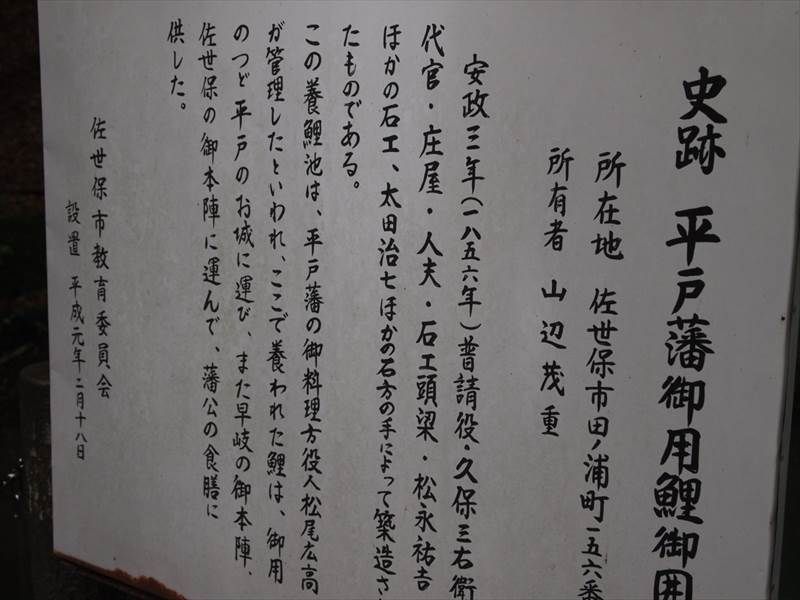 史跡 平戸藩御用鯉御囲
所在地 佐世保市田ノ浦町一五六番
所有者 山辺茂重
安政三年(一八五六年)普請役・久保三右衛
代官・庄屋・人夫・石工頭梁・松永祐吉
ほかの石工、太田治七ほかの石方の手によって築造さ
たものである。
この養鯉池は、平戸藩の御料理方役人松尾広高
が管理したといわれ、ここで養われた鯉は、御用
のつど平戸のお城に運び、また早岐の御本陣、
佐世保の御本陣に運んで、藩公の食膳に
供した。
佐世保市教育委員会
設置 平成元年二月十八日